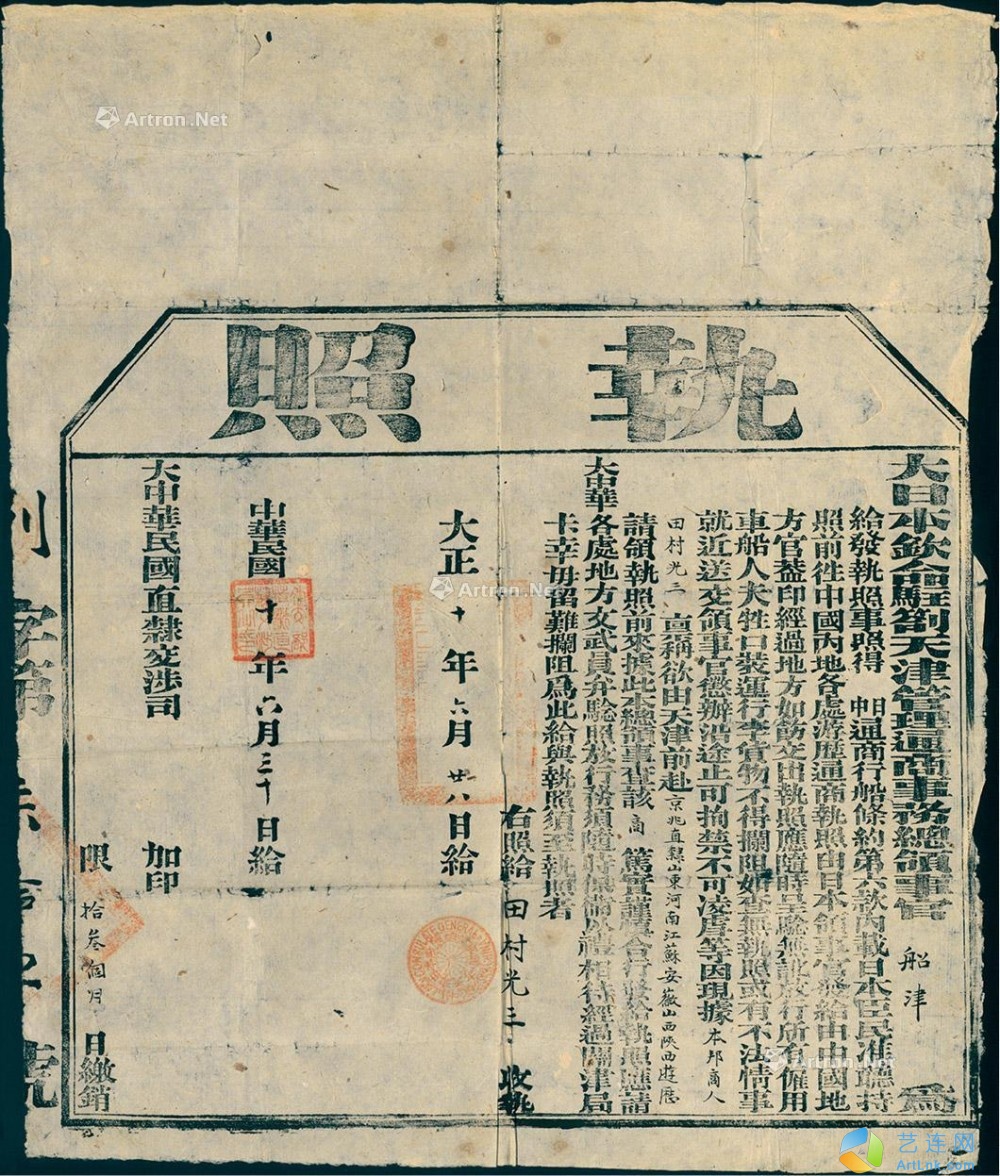 執照
大日本欽命駐劄天津管理通商事務總領事官 船津 爲
給發執照事照得中日通商行船條約第六款內載日本臣民准聽持
照前往中國內地各處游歷通商執照由日本領事官發給由中國地
方官蓋印經過地方如飭交出執照應隨時呈驗無訛放行所有僱用
車船人夫牲口裝運行李貨物不得攔阻如查無執照或有不法情事
就近送交領事官懲辦沿途止可拘禁不可凌虐等因現據本邦商人
田村光三稟稱欲由天津前赴京兆直隸山東河南江蘇安徽山西陝西遊歷
請領執照前來據此本總領事查該商篤實謹愼合行發給執照應請
大中華各處地方文武員弁驗照放行務須隨時保衛以禮相待經過關津局
卡幸毋留難攔阻爲此給與執照須至執照者
右照給田村光三收執
大正十年六月廿八日給
中華民國十年六月三十日給
大中華民國直隸交涉司 加印
限拾叁個月日繳銷
字第 號
Artron.Net
Artron.Net
Artron.Net
艺连网
ArtLnk.com